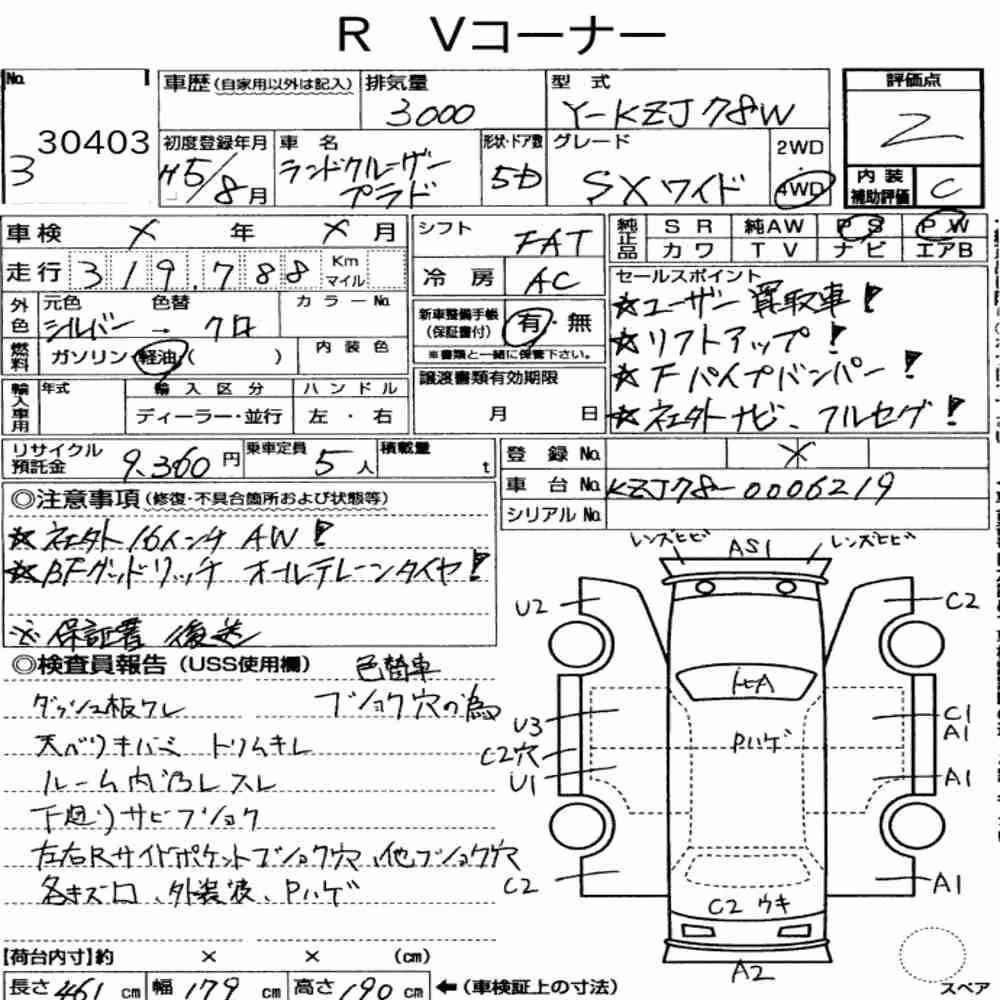 R Vコーナー
No. 30403
3
車歴(自家用以外は記入)
排気量 3000
型式 Y-KZJ78W
評価点 2
内装補助評価 C
初度登録年月 H5/8月
車名 ランドクルーザープラド
形状・ドア数 5D
グレード SXワイド
2WD・4WD
車検 × 年 × 月
シフト FAT
冷房 AC
純正品 SR 純AW PS PW
カワ TV ナビ エアB
走行 319,788 Km マイル
外色 元色 色替 カラーNo.
シルバー → クロ
燃料 ガソリン 軽油 ( ) 内装色
新車整備手帳(保証書付) 有・無
※書類と一緒に保管下さい。
譲渡書類有効期限 月 日
セールスポイント
☆ユーザー買取車!
☆リフトアップ!
☆F パイプバンパー!
☆社外ナビ、フルセグ!
輸入車用 年式 輸入区分 ハンドル
ディーラー・並行 左・右
リサイクル預託金 9,360円
乗車定員 5人
積載量 t
登録No. ×
車台No. KZJ78-0006219
シリアルNo.
◎注意事項(修復・不具合箇所および状態等)
☆社外16インチ AW!
☆BFグッドリッチ オールテレーンタイヤ!
※保証書 後送
◎検査員報告(USS使用欄) 色替車
ダッシュ板ワレ フショク穴の為
天ベリキバミ トリムキレ
ルーム内汚レスレ
下廻リサビフショク
左右Rサイドポケットフショク穴、他フショク穴
各キズ凹、外装波、Pハゲ
【荷台内寸】約 × × (cm)
長さ 461 cm 幅 179 cm 高さ 190 cm ←(車検証上の寸法)
レンズヒビ
AS1
レンズヒビ
U2
C2
ヒA
U3
C2穴
U1
Pハゲ
C1
A1
A1
C2
A1
C2 ウキ
A2
スペア